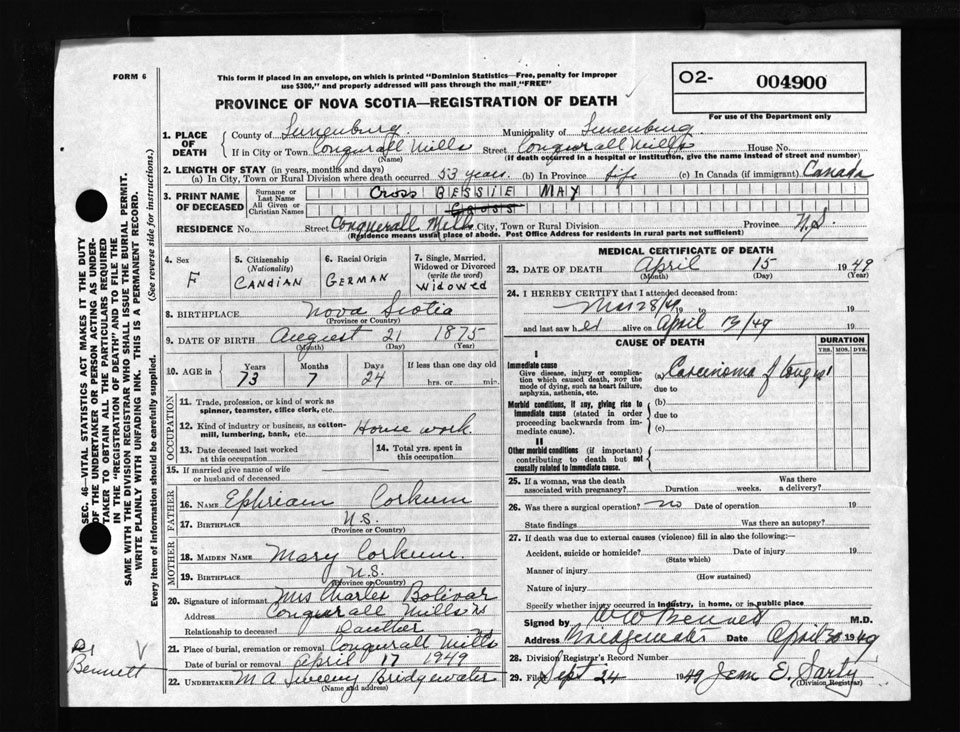 FORM 6
This form if placed in an envelope, on which is printed "Dominion Statistics—Free, penalty for improper
use $300," and properly addressed will pass through the mail "FREE"
O2- 004900
For use of the Department only
PROVINCE OF NOVA SCOTIA—REGISTRATION OF DEATH
1. PLACE OF DEATH
County of Lunenburg Municipality of Lunenburg
If in City or Town Conquerall Mills Street Conquerall Mills House No.
(Name) (If death occurred in a hospital or institution, give the name instead of street and number)
2. LENGTH OF STAY (in years, months and days)
(a) In City, Town or Rural Division where death occurred 53 years. (b) In Province life (c) In Canada (if immigrant) Canada
3. PRINT NAME OF DECEASED
Surname or Last Name Cross BESSIE MAY
All Given or Christian Names Cross
RESIDENCE No. Street Conquerall Mills City, Town or Rural Division Province N.S.
(Residence means usual place of abode. Post Office Address for residents in rural parts not sufficient)
4. Sex F
5. Citizenship (Nationality) CANDIAN
6. Racial Origin GERMAN
7. Single, Married, Widowed or Divorced (write the word) WIDOWED
8. BIRTHPLACE Nova Scotia
(Province or Country)
9. DATE OF BIRTH August 21 1875
(Month) (Day) (Year)
10. AGE in Years Months Days If less than one day old
73 7 24 hrs. or min.
OCCUPATION
11. Trade, profession, or kind of work as spinner, teamster, office clerk, etc.
12. Kind of industry or business, as cotton-mill, lumbering, bank, etc. House work
13. Date deceased last worked at this occupation
14. Total yrs. spent in this occupation
15. If married give name of wife or husband of deceased
FATHER
16. NAME Ephriam Corkum
17. BIRTHPLACE N.S.
(Province or Country)
MOTHER
18. MAIDEN NAME Mary Corkum.
19. BIRTHPLACE N.S.
(Province or Country)
20. Signature of informant Mrs Charles Bolivar
Address Conquerall Mills NS
Relationship to deceased Dauther
21. Place of burial, cremation or removal Conquerall Mills
Date of burial or removal April 17 1949
22. UNDERTAKER M A Sweeny Bridgewater
(Name and address)
MEDICAL CERTIFICATE OF DEATH
23. DATE OF DEATH April 15 1949
(Month) (Day) (Year)
24. I HEREBY CERTIFY that I attended deceased from:
Mar 28/49 19 to 19
and last saw her alive on April 13/49 19
CAUSE OF DEATH DURATION
YRS. MOS. DYS.
I
Immediate cause
Give disease, injury or complication which caused death, not the mode of dying, such as heart failure, asphyxia, asthenia, etc.
Carcinoma of
due to
Morbid conditions, if any, giving rise to immediate cause (stated in order proceeding backwards from immediate cause).
(b)
due to
(c)
II
Other morbid conditions (if important) contributing to death but not causally related to immediate cause.
25. If a woman, was the death associated with pregnancy? Duration weeks. Was there a delivery?
26. Was there a surgical operation? no Date of operation 19
State findings Was there an autopsy?
27. If death was due to external causes (violence) fill in also the following:—
Accident, suicide or homicide? Date of injury 19
(State which)
Manner of injury
(How sustained)
Nature of injury
Specify whether injury occurred in industry, in home, or in public place
Signed by W W Bennett M.D.
Address Bridgewater Date April 30 1949
28. Division Registrar's Record Number
29. Filed Sept 24 1949 Jean E. Sarty
(Division Registrar)
SEC. 46—VITAL STATISTICS ACT MAKES IT THE DUTY
OF THE UNDERTAKER OR PERSON ACTING AS UNDER-
TAKER TO OBTAIN ALL THE PARTICULARS REQUIRED
IN THE "REGISTRATION OF DEATH" AND TO FILE THE
SAME WITH THE DIVISION REGISTRAR WHO SHALL ISSUE THE BURIAL PERMIT.
WRITE PLAINLY WITH UNFADING INK. THIS IS A PERMANENT RECORD.
Every item of information should be carefully supplied. (See reverse side for instructions.)
Dr
Bennett